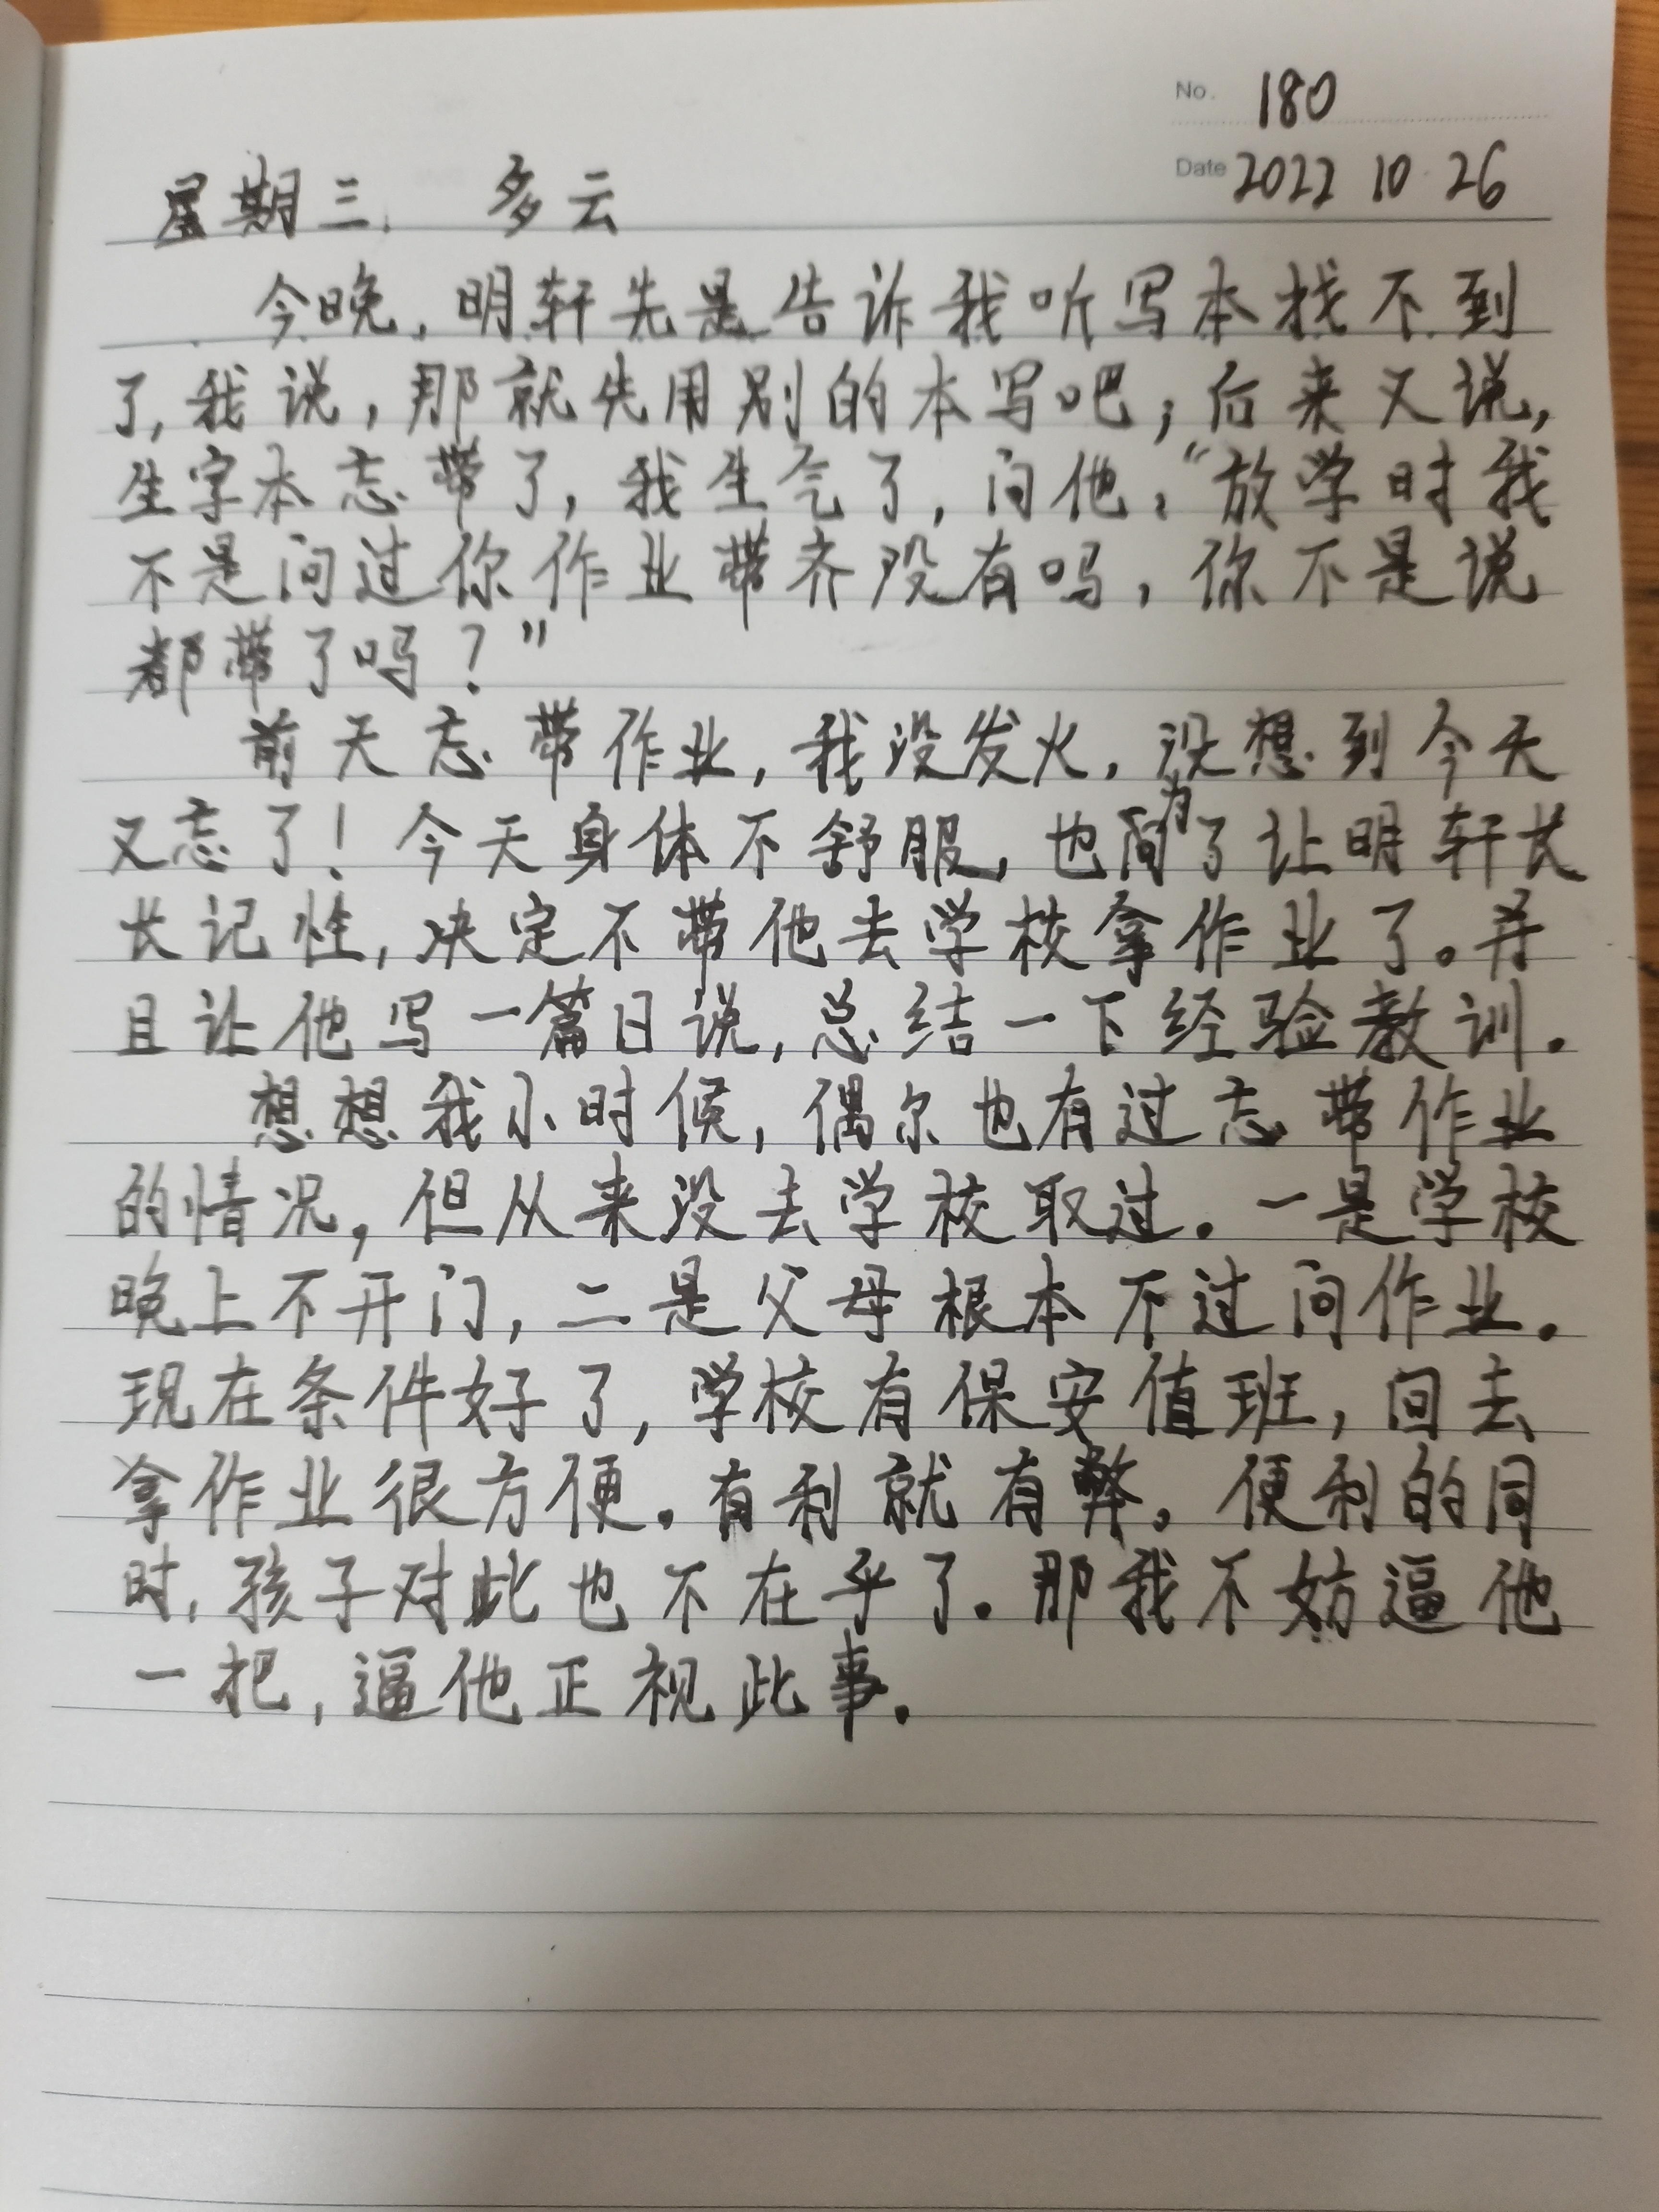 No. 180
Date 2022 10 26
星期三. 多云
今晚,明轩先是告诉我听写本找不到
了,我说,那就先用别的本写吧;后来又说,
生字本忘带了,我生气了,问他:“放学时我
不是问过你作业带齐没有吗,你不是说
都带了吗?”
前天忘带作业,我没发火,没想到今天
又忘了!今天身体不舒服,也为了让明轩长
长记性,决定不带他去学校拿作业了。并
且让他写一篇日说,总结一下经验教训.
想想我小时候,偶尔也有过忘带作业
的情况,但从来没去学校取过.一是学校
晚上不开门,二是父母根本不过问作业.
现在条件好了,学校有保安值班,回去
拿作业很方便.有利就有弊。便利的同
时,孩子对此也不在乎了.那我不妨逼他
一把,逼他正视此事.